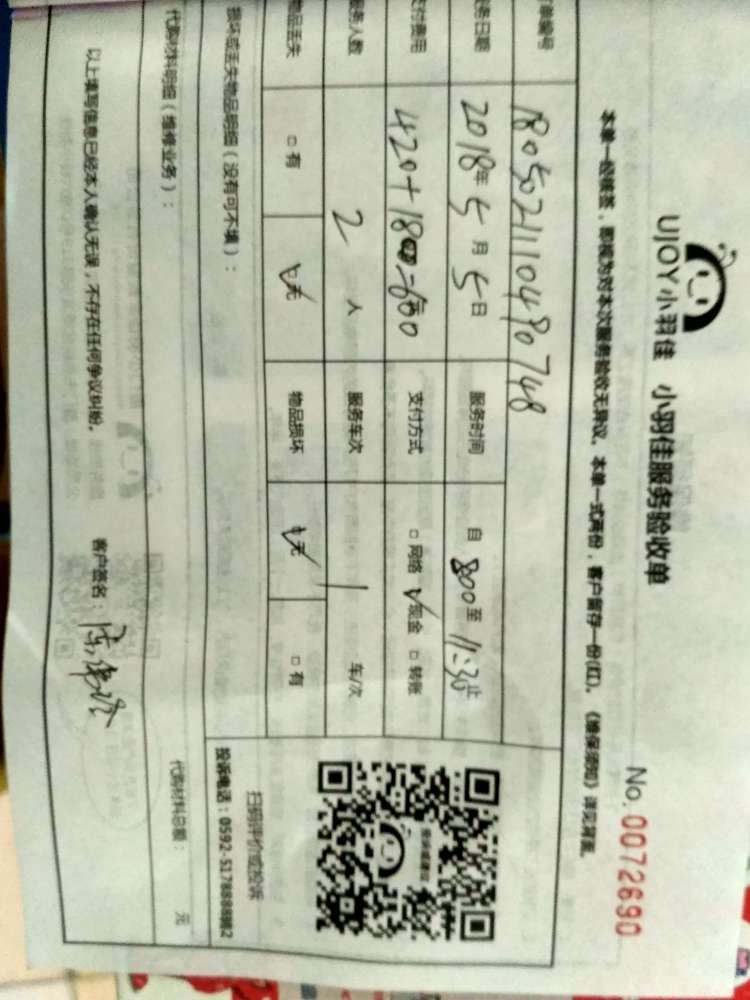 UJOY小羽佳 小羽佳服务验收单
No. 0072690
本单一经核签，即视为对本次服务验收无异议。本单一式两份，客户留存一份(红)。《维保须知》详见背面。
单编号 1805021110480748
务日期 2018年5月5日 服务时间 自 800 至 11:30 止
支付费用 420+180=600 支付方式 □网络 ✓现金 □转账
服务人数 2 人 服务车次 1 车/次
物品丢失 □有 ✓无 物品损坏 ✓无 □有
损坏或丢失物品明细（没有可不填）：
扫码评价或投诉
投诉电话：0592-5178888转2
代购材料明细（维修业务）：
代购材料总额： 元
以上填写信息已经本人确认无误，不存在任何争议纠纷。
客户签名：